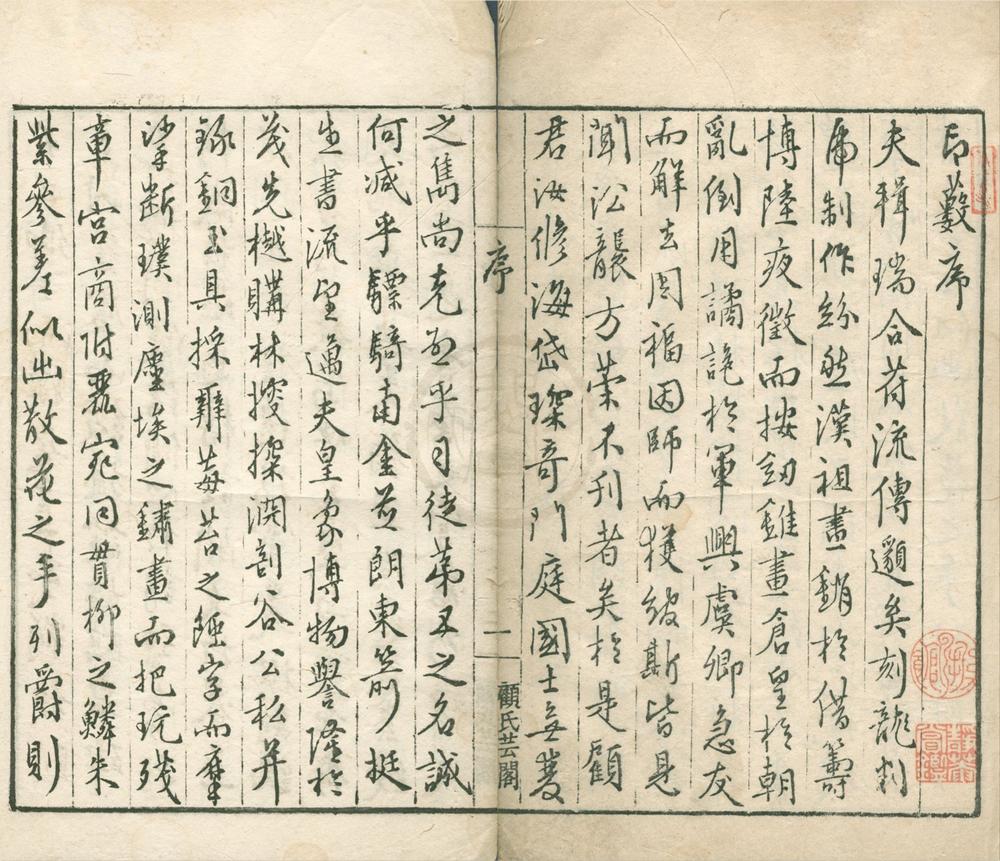 印藪序
夫輯瑞合符流傳邈矣刻龍剖
虎制作紛然漢祖畫銷於借籌
博陸夜徵而按劒雖畫倉皇於朝
亂倒用譎詭於軍興虞卿急友
而解去周福因師而獲綬斯皆見
聞沿襲方策不刊者矣於是顧
君汝修海岱琛奇門庭國士無雙
序
一
顧氏芸閣
之雋尚克致乎司徒第五之名誠
何減乎驃騎南金並朗東箭挺
生書流望邁夫皇象博物譽隆於
茂先樾購林搜探淵剖谷公私并
錄銅玉具採辭苺苔之鈕字而摩
挲斷璞測塵埃之鏽畫而把玩殘
章宮商附麗宛同貫柳之鱗朱
紫參差似出散花之手列爵則